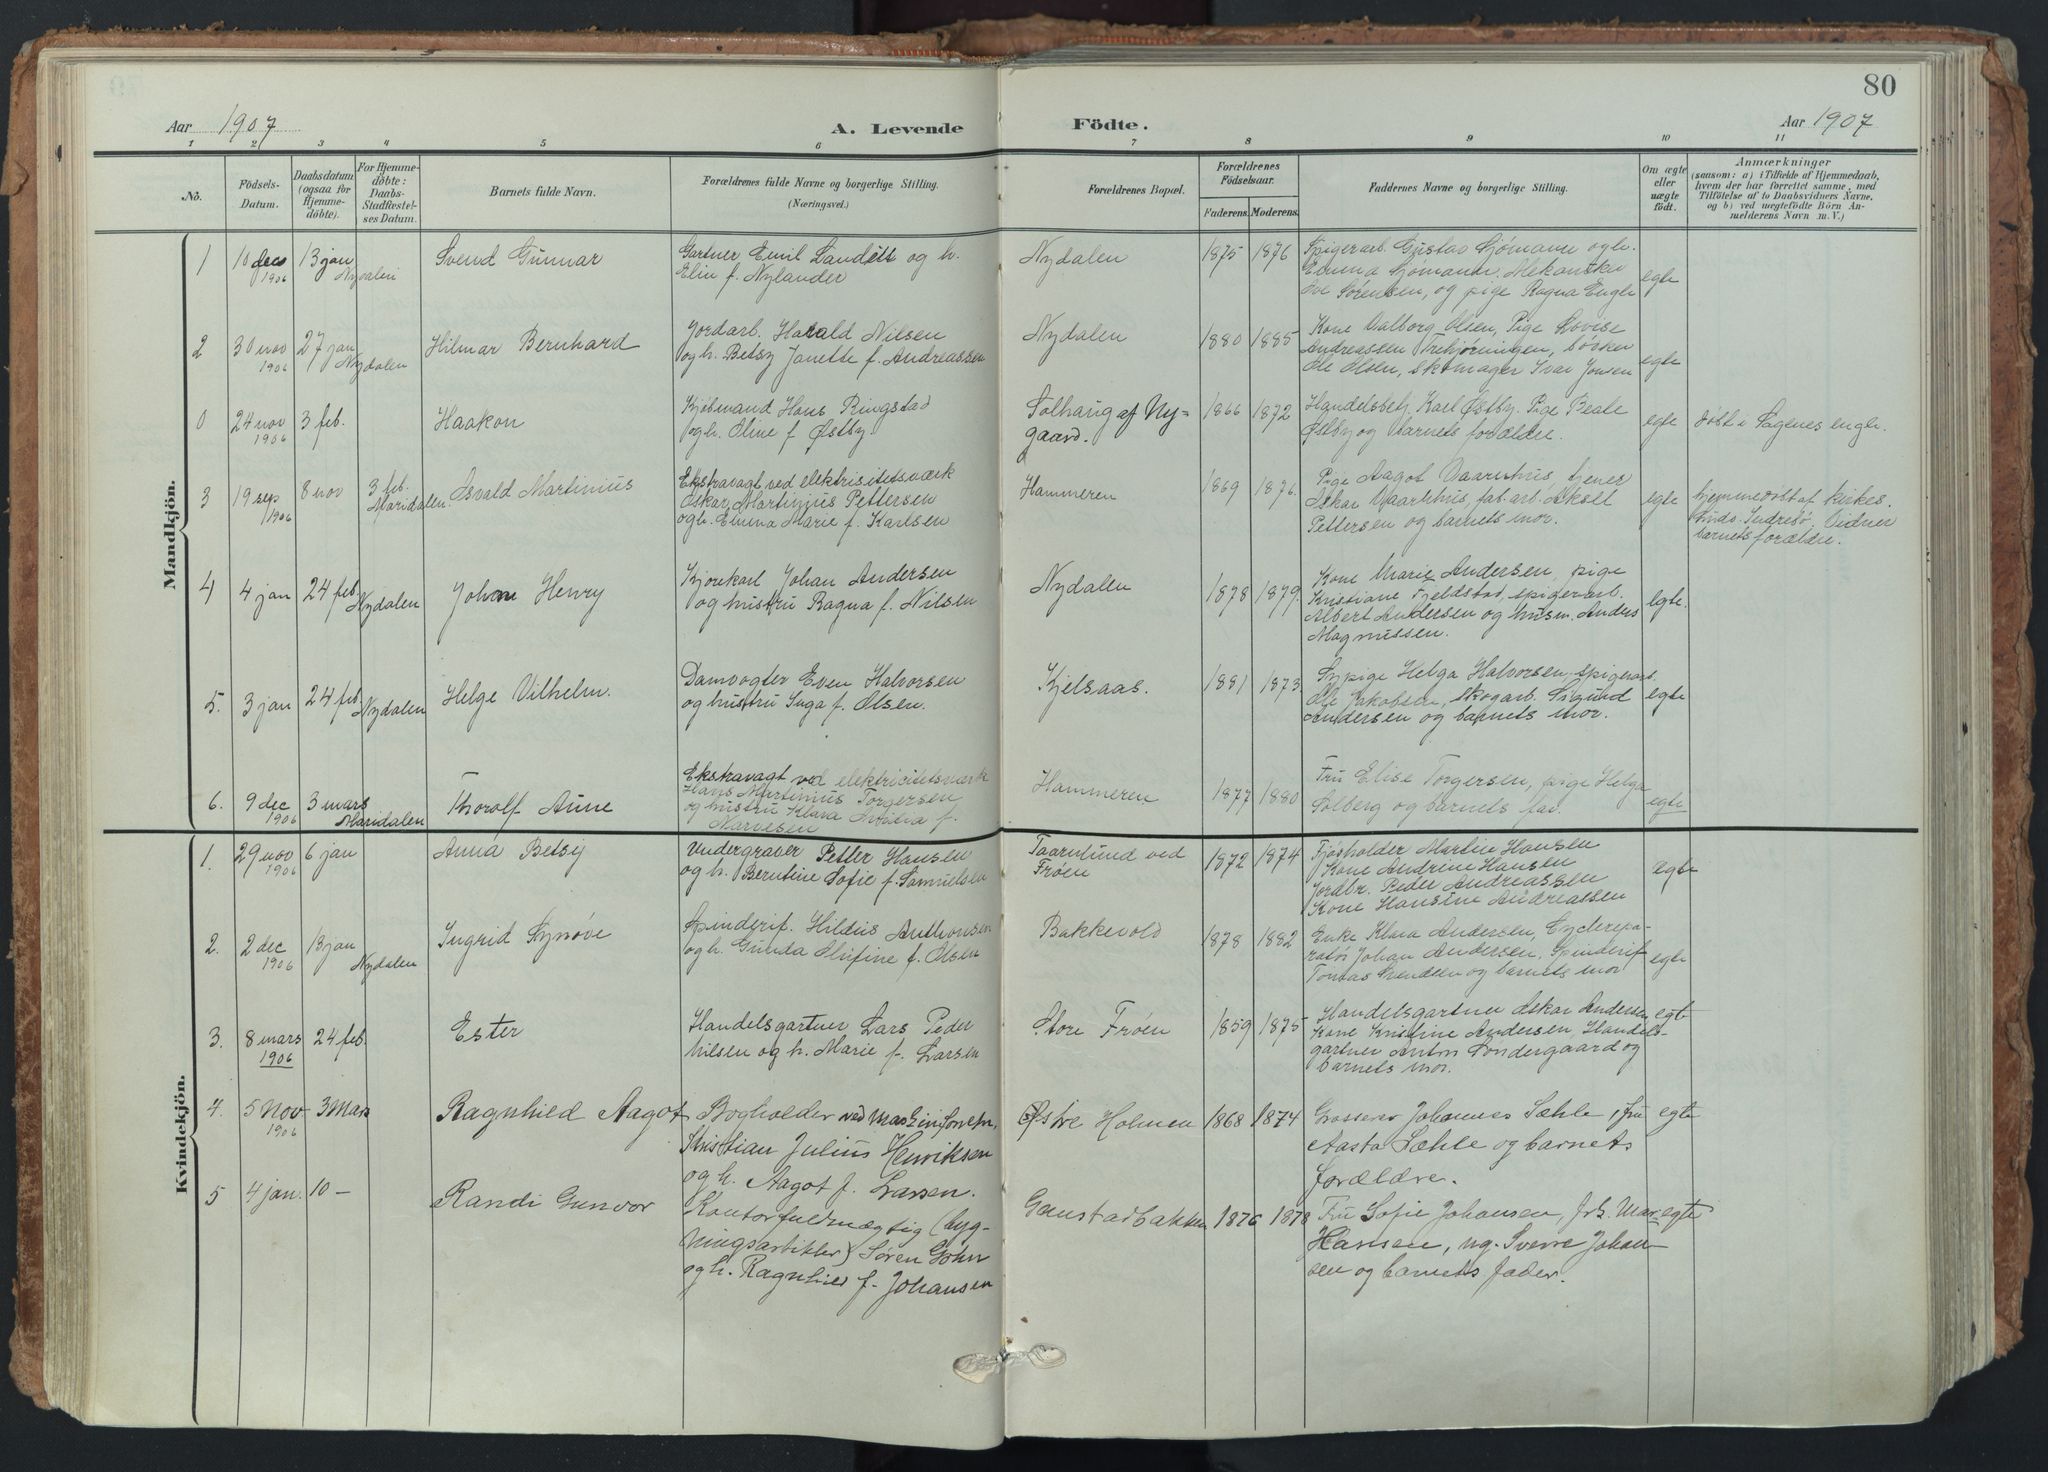 80
Aar 1907
A. Levende Födte.
Aar 1907
1 2 3 4 5 6 7 8 9 10 11
No.
Födsels-
Datum.
Daabsdatum
(ogsaa for
Hjemme-
döbte).
For Hjemme-
döbte:
Daabs-
Stadfæstel-
ses Datum.
Barnets fulde Navn.
Forældrenes fulde Navne og borgerlige Stilling.
(Næringsvei.)
Forældrenes Bopæl.
Forældrenes
Födselsaar.
Faderens. Moderens.
Faddernes Navne og borgerlige Stilling.
Om ægte
eller
uægte
födt.
Anmærkninger
(saasom: a) i Tilfælde af Hjemmedaab,
hvem der har forrettet samme, med
Tilföielse af to Daabsvidners Navne,
og b) ved uægtefödte Börn An-
melderens Navn m. V.)
Mandkjön.
1 10 dec 1906 13 jan Nydalen
Svend Gunnar
Gartner Emil Sandell og h.
Elin f. Nylander
Nydalen
1875 1876
Spigerarb. Gustav Sjømann og h.
Emma Sjømann, Mekaniker
Sørensen, og pige Ragna Engh
egte
2 30 nov 1906 27 jan Nydalen
Hilmar Bernhard
Jordarb. Harald Nilsen
og h. Betsy Janette f. Andreassen
Nydalen
1880 1885
Kone Valborg Olsen, Pige Lovise
Andreassen bøsker
Ole Olsen, skomager Ivar Jonsen
egte
0 24 nov 1906 3 feb.
Haakon
Kjøbmand Hans Ringstad
og h. Oline f Østby.
Solhaug af Ny-
gaard.
1866 1872
Handelsbetj. Karl Østby. Pige Beate
Østby og barnets forældre.
egte
døbt i Sagenes engh.
3 19 sep 1906 8 nov 3 feb. Maridalen.
Osvald Martinius
Ekstravagt ved elektrisitetsværk
Oskar Martinius Pettersen
og h. Emma Marie f. Karlsen
Hammeren
1869 1876.
Pige Aagot Vaarnhus, tjener
Oskar Vaarnhus, fab. arb. Aksel
Pettersen og barnets mor.
egte
hjemmedøbt af kirkes.
Indrebø. Vidner
barnets forældre.
4 4 jan 24 feb. Nydalen
Johan Henry
Kjørekarl Johan Andersen
og hustru Ragna f. Nilsen
Nydalen
1878 1879.
Kone Marie Andersen, pige
Kristiane Fjeldstad, spigerarb.
Albert Andersen og husm. Anders
Magnussen.
egte.
5. 3 jan 24 feb. Nydalen
Helge Vilhelm.
Damvogter Even Halvorsen
og hustru Inga f. Olsen.
Kjelsaas.
1881 1873.
Sypige Helga Halvorsen, spigerarb.
Ole Jakobsen, skogarb. Sigurd
Andersen og barnets mor.
egte
6. 9 dec 1906 3 mars Maridalen
Thorolf Aune
Ekstravagt ved elektricitetsværk
Hans Martinius Torgersen
og hustru Klara f.
Narvesen
Hammeren
1877 1880
Fru Elise Torgersen, pige Helga
Solberg og barnets far.
egte
Kvindekjön.
1. 29 nov 1906 6 jan
Anna Betsy
Vendergraver Petter Hansen
og h. Berntine Sofie f. Samuelsen
Taarnlund ved
Frøen
1872 1874
Fjøsholder Martin Hansen
Kone Andrine Hansen
Jordbr. Peder Andreassen
Kone Hansine Andreassen
egte
2. 2 dec 1906 13 jan Nydalen
Ingrid Synøve
Spinderif. Hildus Anthonsen
og h. Gunda Olufine f. Olsen
Bakkevold
1878 1882
Enke Klara Andersen, Cyclerepa-
ratør Johan Andersen, Spinderif
Tomas Svendsen og barnets mor
egte
3. 8 mars 1906 24 feb.
Ester
Handelsgartner Lars Peder
Nilsen og h. Marie f. Larsen
Store Frøen
1859 1875
Handelsgartner Oskar Andersen
Kone Kristine Andersen, Handels-
gartner Anton Søndergaard og
barnets mor.
egte
4. 5 Nov 1906 3 Mars
Ragnhild Aagot
Bogholder ved
Kristian Julius Henriksen
og h. Aagot f. Larsen.
Østre Holmen
1868 1874
Grosserer Johannes Sæhle, fru
Aasta Sæhle og barnets
forældre.
egte
5 4 jan. 10 –
Randi Gunvor
Kontorfuldmægtig (byg-
ningsarbitkter) Søren Gohn
og h. Ragnhild f. Johansen
Gaustadbakken
1876 1878
Fru Sofie Johansen, frk. Mar.
Hansen, ug. Sverre Johan-
sen og barnets fader.
egte